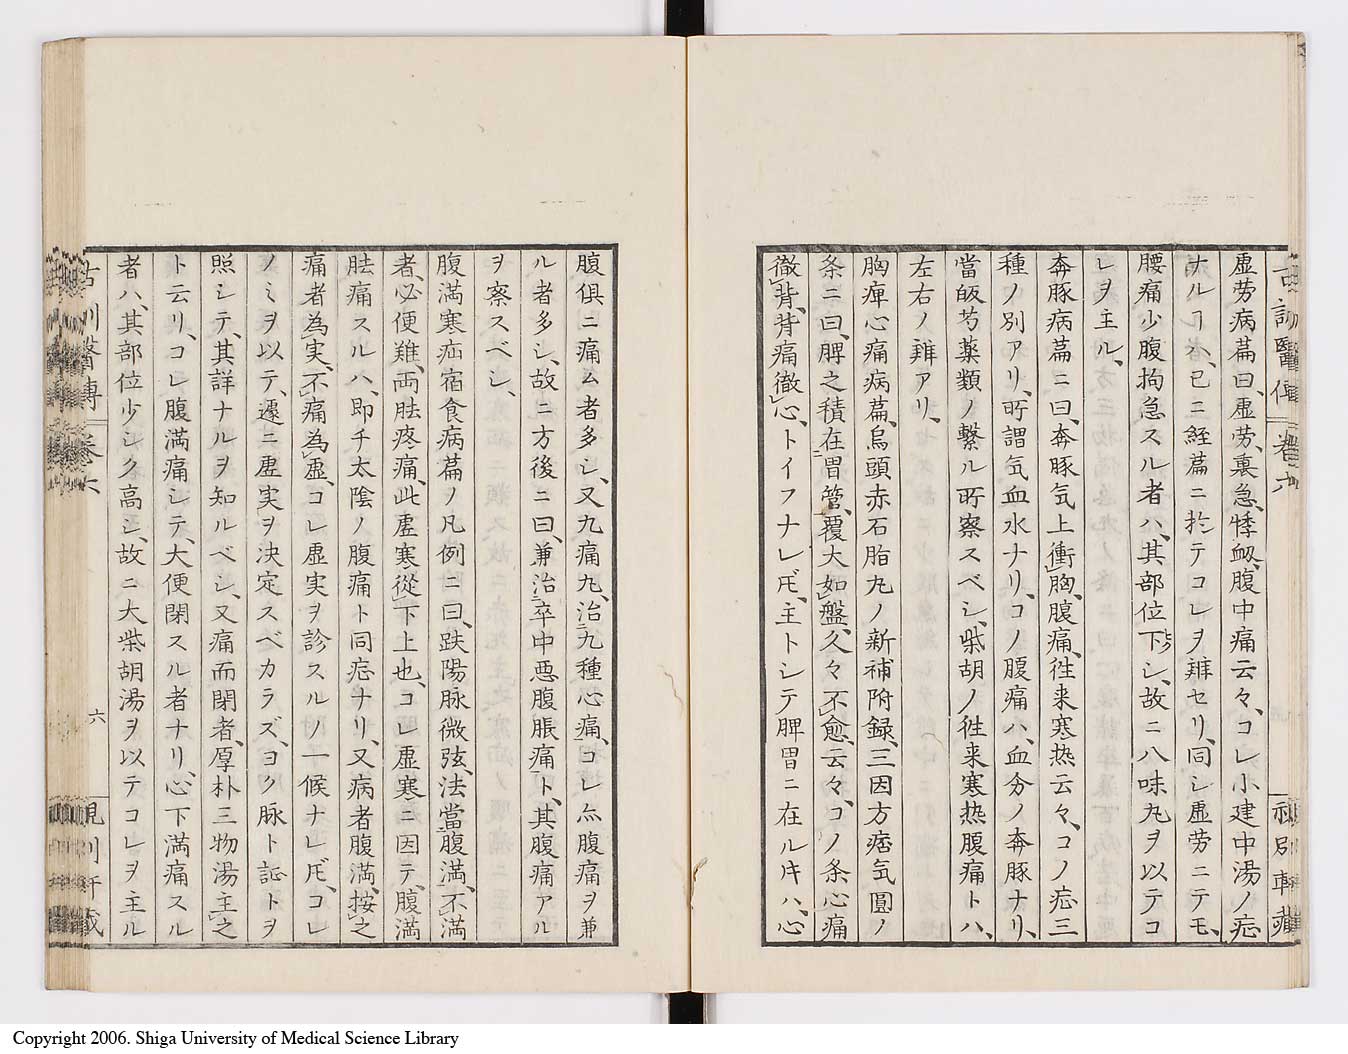 虚劳病篇曰虚劳、裏急、悸衂、腹中痛云々、コレ小建中湯ノ症
ナルヿハ、已ニ経篇ニ於テコレヲ辨セリ、同シ虚劳ニテモ、
腰痛少腹拘急スル者ハ、其部位下シ、故ニ八味丸ヲ以テコ
レヲ主ル、
奔豚病篇ニ曰、奔豚気上衝胸、腹痛、徃来寒热云々、コノ症三
種ノ別アリ、所謂気血水ナリ、コノ腹痛ハ、血分ノ奔豚ナリ、
當皈芍薬類ノ繋ル所察スベシ、柴胡ノ徃来寒热腹痛トハ、
左右ノ辨アリ、
胸痺心痛病篇、烏頭赤石脂丸ノ新補附録、三因方痞気圓ノ
条ニ曰、脾之積在胃管、覆大如盤、久々不愈、云々、コノ条心痛
徹背、背痛徹心、トイフナレ𪜈、主トシテ脾胃ニ在ルキハ、心
腹俱ニ痛ム者多シ、又九痛丸、治九種心痛、コレ亦腹痛ヲ兼
ル者多シ、故ニ方後ニ曰、兼治卒中悪腹脹痛ト、其腹痛アル
ヲ察スベシ、
腹満寒疝宿食病篇ノ凡例ニ曰、趺陽脉微弦、法當腹満、不満
者、必便難、両胠疼痛、此虚寒從下上也、コレ虚寒ニ因テ、腹満
胠痛スルハ、即チ太陰ノ腹痛ト同症ナリ、又病者腹満、按之
痛者為実、不痛為虚、コレ虚実ヲ診スルノ一候ナレ𪜈、コレ
ノミヲ以テ、遽ニ虚実ヲ決定スベカラズ、ヨク脉ト証トヲ
照シテ、其詳ナルヲ知ルベシ、又痛而閉者、厚朴三物湯主之
ト云リ、コレ腹満痛シテ、大便閉スル者ナリ、心下満痛スル
者ハ、其部位少シク高シ、故ニ大柴胡湯ヲ以テコレヲ主ル
六
Copyright 2006. Shiga University of Medical Science Library